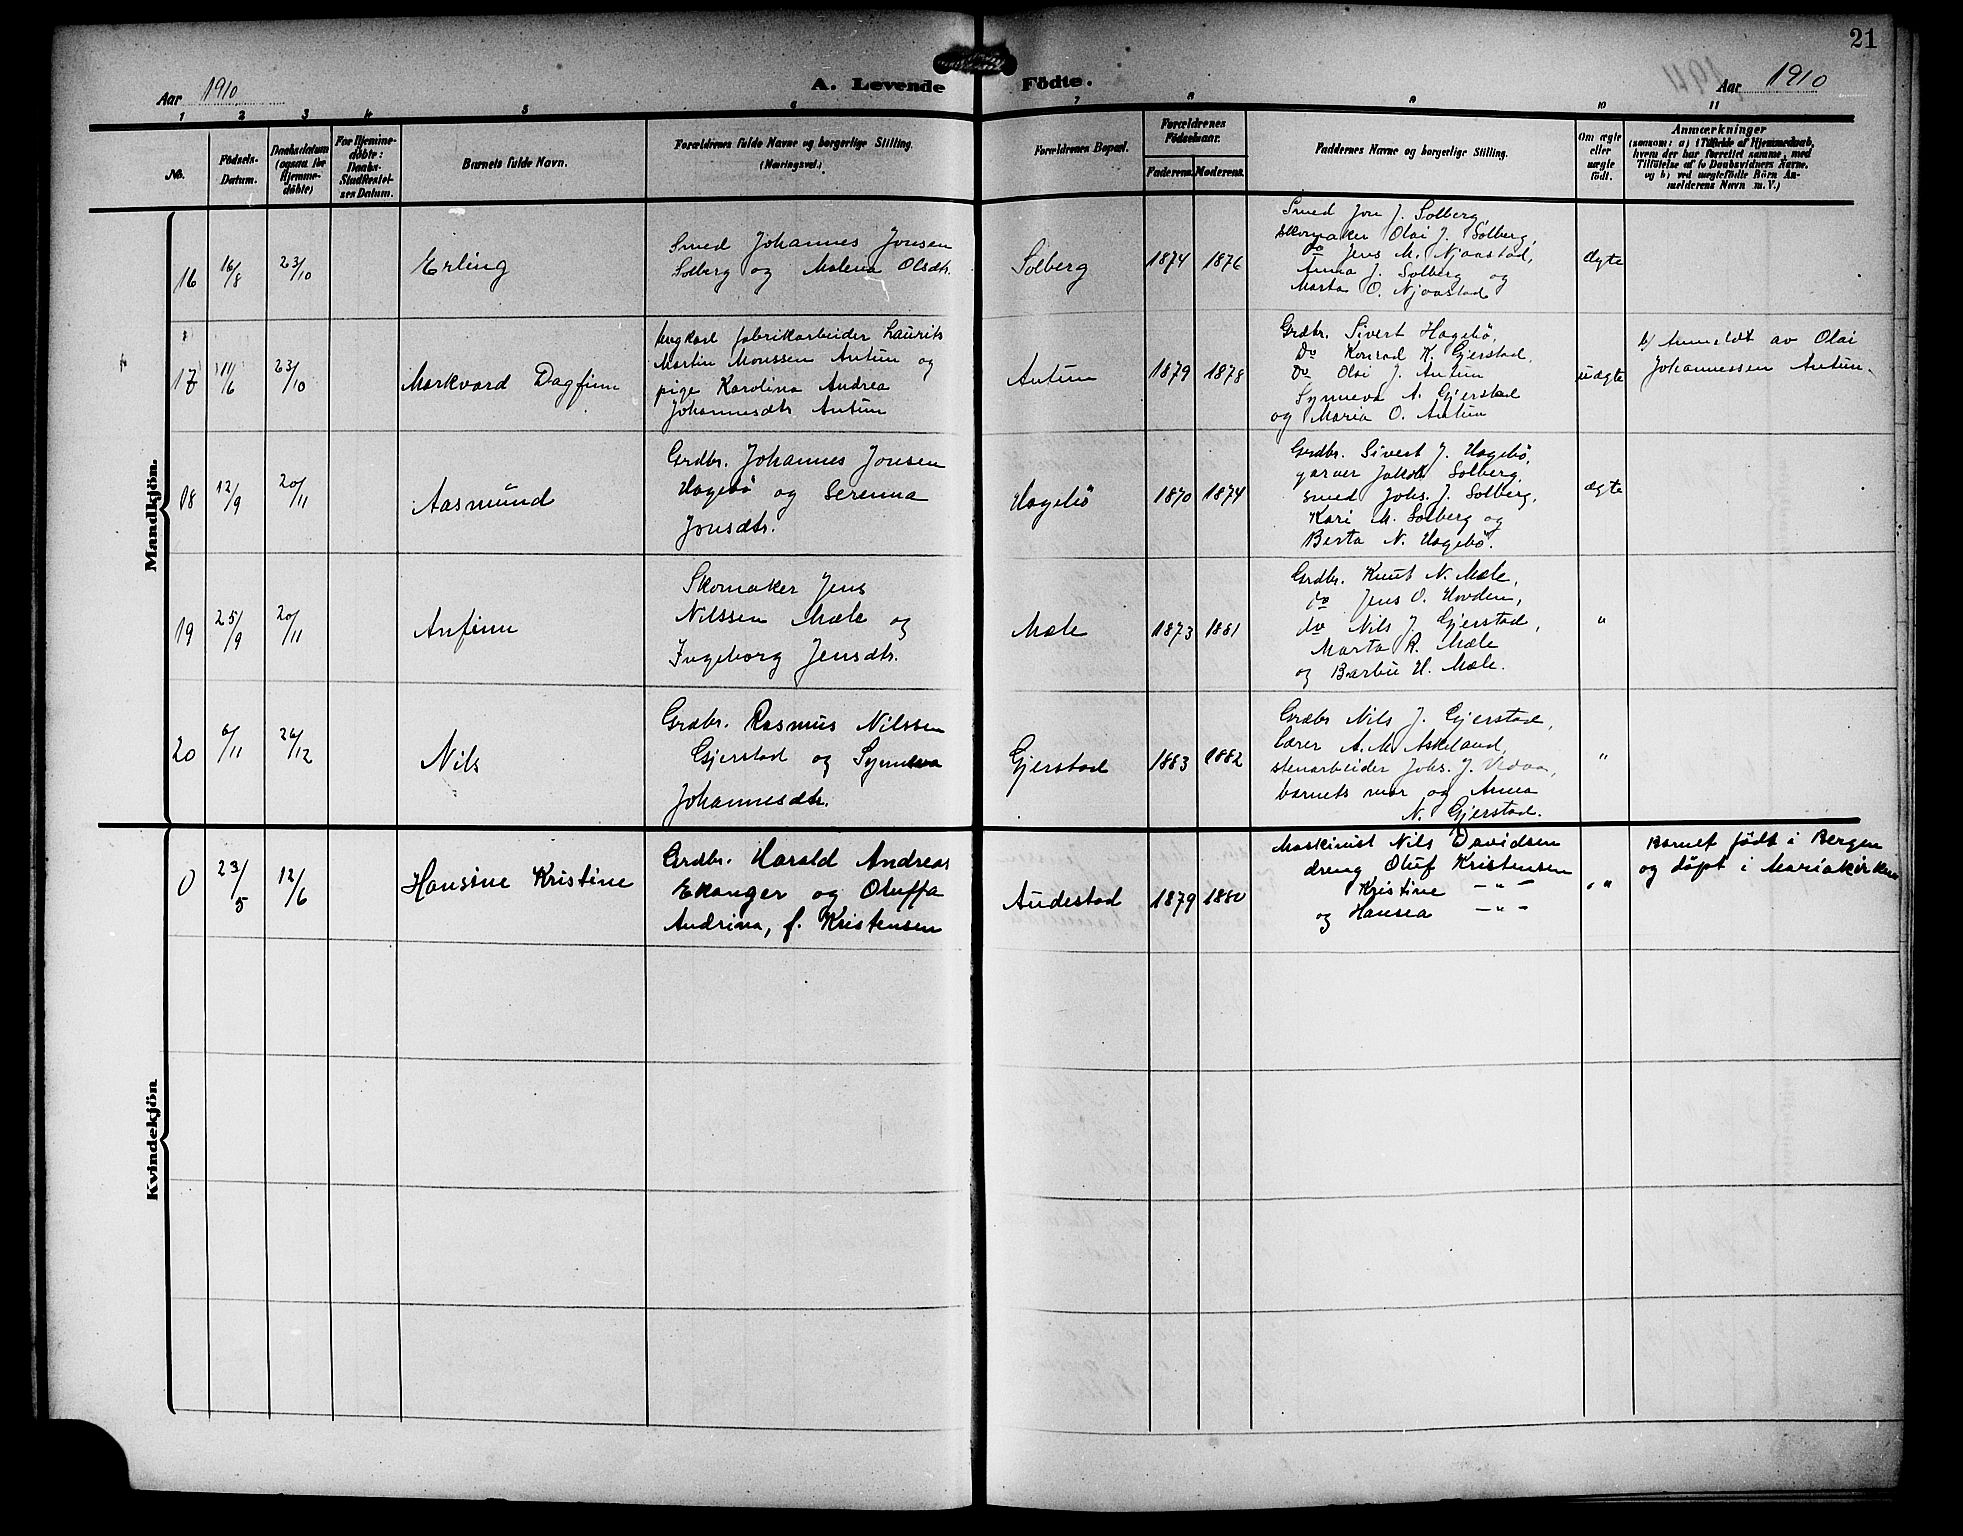 21
Aar 1910
A. Levende Födte.
Aar 1910
1 2 3 4 5 6 7 8 9 10 11
No.
Födsels-
Datum.
Daabsdatum
(ogsaa for
Hjemme-
döbte)
For Hjemme-
döbte:
Daabs-
Stadfæstel-
ses Datum.
Barnets fulde Navn.
Forældrenes fulde Navne og borgerlige Stilling.
(Næringsvei.)
Forældrenes Bopæl.
Forældrenes
Födselsaar.
Faderens.
Moderens.
Faddernes Navne og borgerlige Stilling.
Om ægte
eller
uægte
födt.
Anmærkninger
(saasom: a) i Tilfælde af Hjemmedaab,
hvem der har forrettet samme, med
Tilföielse af to Daabsvidners Navne,
og b) ved uægtefödte Börn An-
melderens Navn m. V.)
Mandkjön.
16
16/8
23/10
Erling
Smed Johannes Jonsen
Solberg og Malena Olsdtr.
Solberg
1874
1876
Smed Jon J. Solberg,
skomaker Olai J. Solberg,
do Jens M. Njaastad,
Anna J. Solberg og
Marta O. Njaastad
ægte
17
11/6
23/10
Markvard Dagfinn
Ungkarl fabrikarbeider Laurits
Martin Monssen Antun og
pige Karolina Andrea
Johannesdtr. Antun
Antun
1879
1878
Grdbr. Sivert Hagebö,
Do Konrad K. Gjerstad,
Do Olai J. Antun
Synneva A. Gjerstad
og Maria O. Antun
uægte
b) Anmeldt av Olai
Johannessen Antun.
18
12/9
20/11
Aasmund
Grdbr. Johannes Jonsen
Hagebö og Serenna
Jonsdtr.
Hagebö
1870
1874
Grdbr. Sivert J. Hagebö,
garver Jakob Solberg,
smed Johs. J. Solberg,
Kari M. Solberg og
Berta N. Hagebö.
ægte
19
25/9
20/11
Anfinn
Skomaker Jens
Nilssen Mæle og
Ingeborg Jensdtr.
Mæle
1873
1881
Grdbr. Knut N. Mæle,
do Jens O. Hovden,
do Nils J. Gjerstad,
Marta R. Mæle
og Barbu H. Mæle.
"
20
6/11
26/12
Nils
Grdbr. Rasmus Nilssen
Gjerstad og Synneva
Johannesdtr.
Gjerstad
1883
1882
Grdbr Nils J. Gjerstad,
lærer A. M. Askeland,
stenarbeider Johs. J. Vedaa,
barnets mor og Anna
N. Gjerstad.
"
Kvindekjön
0
23/5
12/6
Hansine Kristine
Grdbr. Harald Andreas
Ekanger og Oluffa
Andrina, f. Kristensen
Audestad
1879
1880
Maskinist Nils Davidsen
dreng Oluf Kristensen
Kristine — " —
og Hansea — " —
"
Barnet født i Bergen
og döpt i Mariakirken